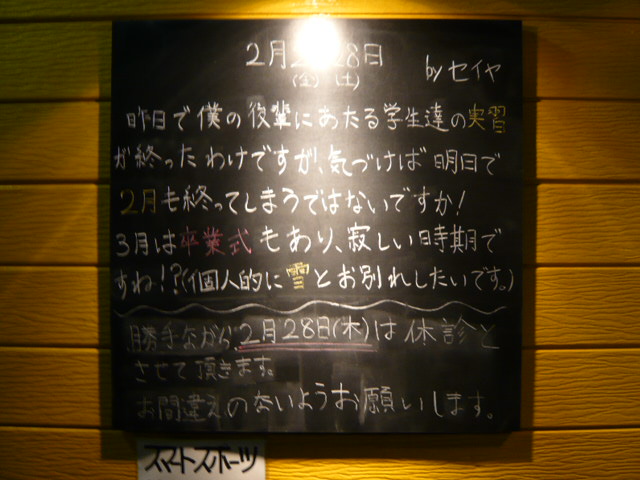 2月 28日
(金) (土)
by セイヤ
昨日で僕の後輩にあたる学生達の実習
が終ったわけですが、気づけば明日で
2月も終ってしまうではないですか!
3月は卒業式もあり、寂しい時期で
すね!?(個人的に雪とお別れしたいです。)
勝手ながら、2月28日(木)は休診と
させて頂きます。
お間違えのないようお願いします。
スマートスポーツ